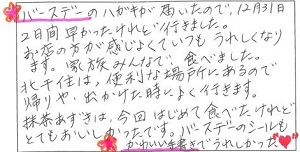 バースデーのハガキが届いたので、12月31日
2日間早かったけれど行きました。
お店の方が感じよくていつもうれしくなり
ます。家族みんなで、食べました。
北千住は、便利な場所にあるので
帰りや、出かけた時によく行きます。
抹茶あずきは、今回はじめて食べたけれど
とてもおいしかったです。バースデーのシールも
かわいい手書きでうれしかった"♥"